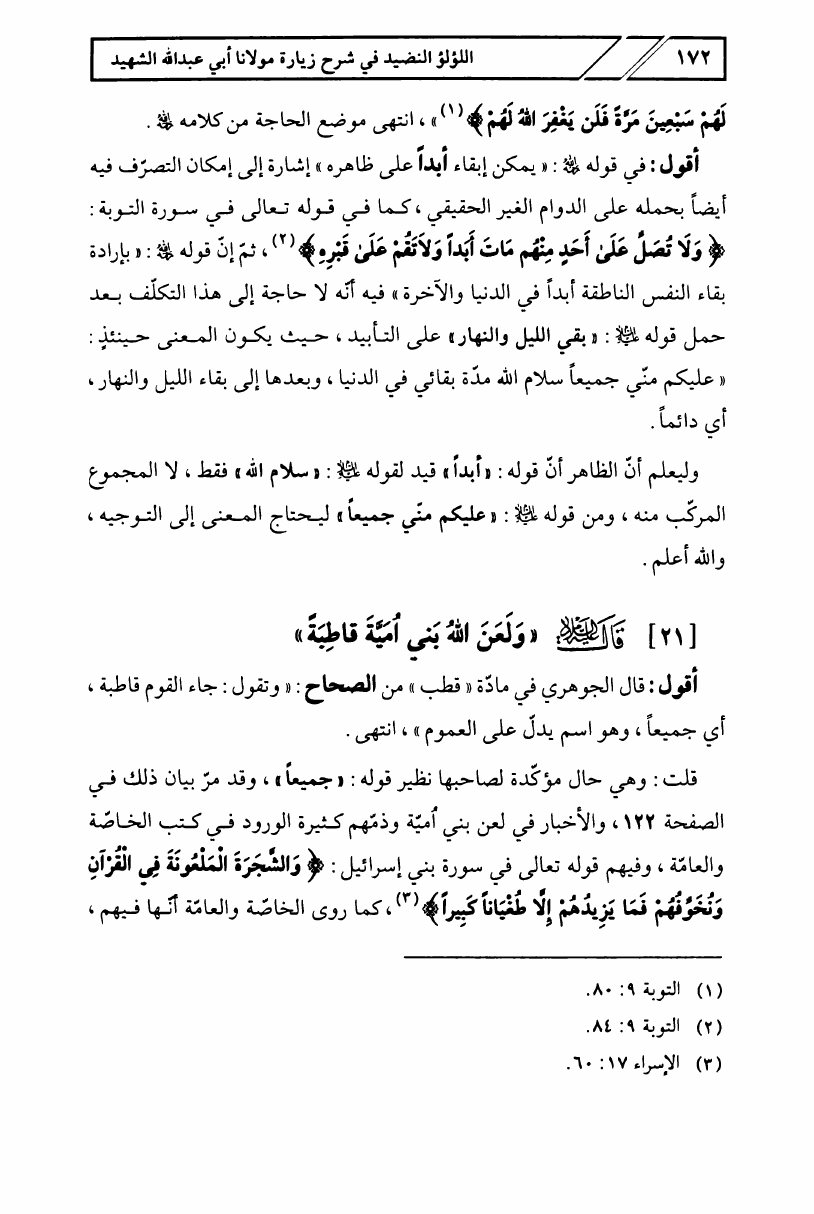 ١٧٢ اللؤلؤ النضيد في شرح زيارة مولانا أبي عبدالله الشهيد
لَهُمْ سَبْعِينَ مَرَّةً فَلَن يَغْفِرَ اللهُ لَهُمْ ﴾(١)» ، انتهى موضع الحاجة من كلامه ﷺ .
أقول : في قوله : « يمكن إبقاء أبداً على ظاهره » إشارة إلى إمكان التصرّف فيه
أيضاً بحمله على الدوام الغير الحقيقي ، كـما فـي قـوله تـعالى فـي سـورة التـوبة :
﴿ وَلَا تُصَلِّ عَلَىٰ أَحَدٍ مِنْهُم مَاتَ أَبَداً وَلَاتَقُمْ عَلَىٰ قَبْرِهِ ﴾(٢) ، ثمّ إنّ قوله : « بإرادة
بقاء النفس الناطقة أبداً في الدنيا والآخرة » فيه أنّه لا حاجة إلى هذا التكلّف بـعد
حمل قوله عليه السلام : « بقي الليل والنهار » على التـأبيد ، حـيث يكـون المـعنى حـينئذٍ :
« عليكم منّي جميعاً سلام الله مدّة بقائي في الدنيا ، وبعدها إلى بقاء الليل والنهار ،
أي دائماً .
وليعلم أنّ الظاهر أنّ قوله : « أبداً » قيد لقوله عليه السلام : « سلام الله » فقط ، لا المجموع
المركّب منه ، ومن قوله عليه السلام : « عليكم منّي جميعاً » ليـحتاج المـعنى إلى التـوجيه ،
والله أعلم .
[٢١] قال عليه السلام « وَلَعَنَ اللهُ بَني اُمَيَّةَ قاطِبَةً »
أقول : قال الجوهري في مادّة « قطب » من الصحاح : « وتقول : جاء القوم قاطبة ،
أي جميعاً ، وهو اسم يدلّ على العموم » ، انتهى .
قلت : وهي حال مؤكّدة لصاحبها نظير قوله : « جميعاً » ، وقد مرّ بيان ذلك فـي
الصفحة ١٢٢ ، والأخبار في لعن بني اُميّة وذمّهم كـثيرة الورود فـي كـتب الخـاصّة
والعامّة ، وفيهم قوله تعالى في سورة بني إسرائيل : ﴿ وَالشَّجَرَةَ الْمَلْعُونَةَ فِي الْقُرْآنِ
وَنُخَوِّفُهُمْ فَمَا يَزِيدُهُمْ إِلَّا طُغْيَاناً كَبِيراً ﴾(٣) ، كما روى الخاصّة والعامّة أنّـها فـيهم ،
(١) التوبة ٩: ٨٠.
(٢) التوبة ٩: ٨٤.
(٣) الإسراء ١٧: ٦٠.